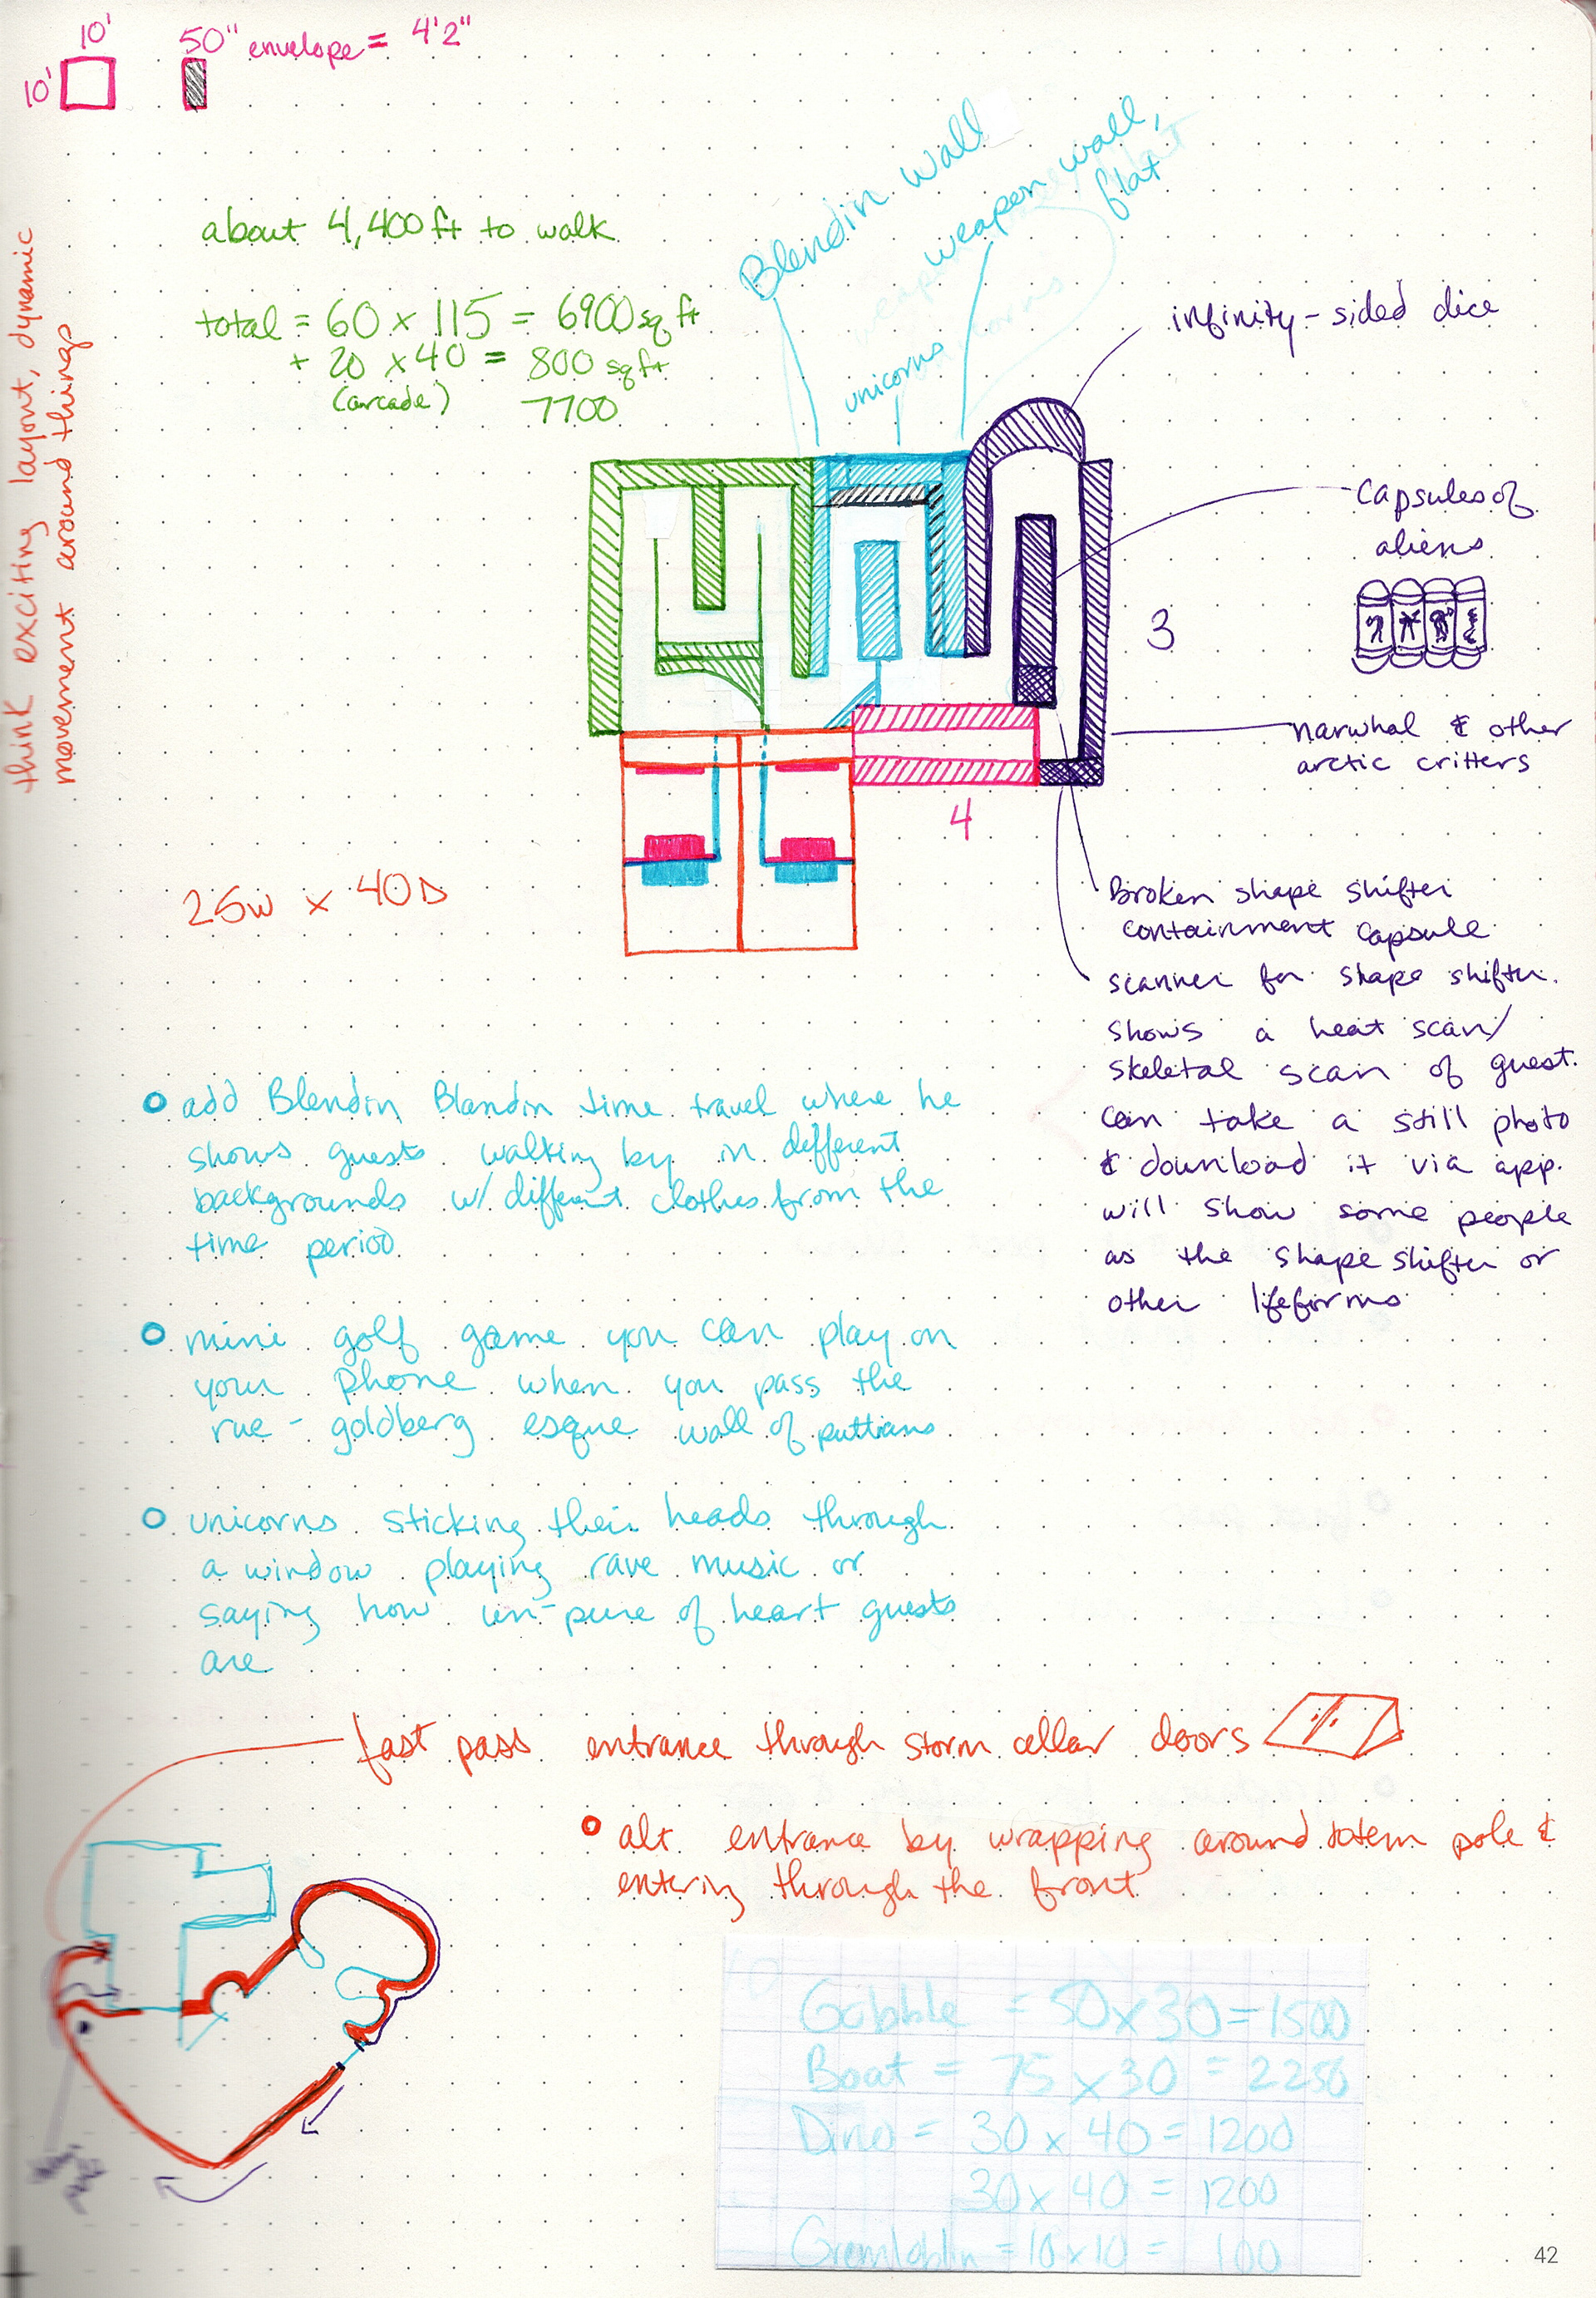 10'
10'
50" envelope = 4'2"
think exciting layout, dynamic
movement around things
about 4,400 ft to walk
total = 60 x 115 = 6900 sq ft
+ 20 x 40 = 800 sq ft
(arcade) 7700
Blendin wall
weapon wall,
flat
unicorns
infinity-sided dice
capsules of
aliens
3
narwhal & other
arctic critters
4
25W x 40D
Broken shape shifter
containment capsule
scanner for shape shifter.
shows a heat scan/
skeletal scan of guest.
can take a still photo
& download it via app.
will show some people
as the shape shifter or
other lifeforms
add Blendin Blandin time travel where he
shows guests walking by in different
backgrounds w/ different clothes from the
time period
mini golf game you can play on
your phone when you pass the
rue-goldberg esque wall of puttians
unicorns sticking their heads through
a window playing rave music or
saying how un-pure of heart guests
are
fast pass entrance through storm cellar doors
alt entrance by wrapping around totem pole &
entering through the front
Gobble = 50x30=1500
Boat = 75x30 = 2250
Dino = 30x40=1200
30x40 = 1200
Gremloblin = 10x10 = 100
42